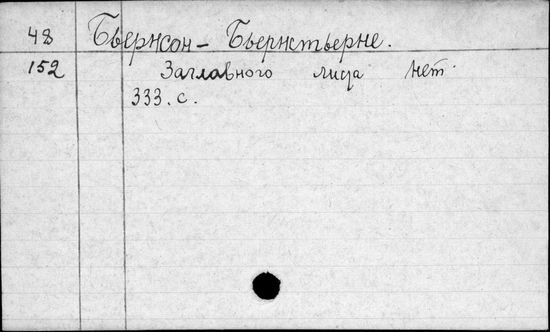 48 Бьернсон - Бьернстьерне.
152 Заглавного лица нет.
333. с.